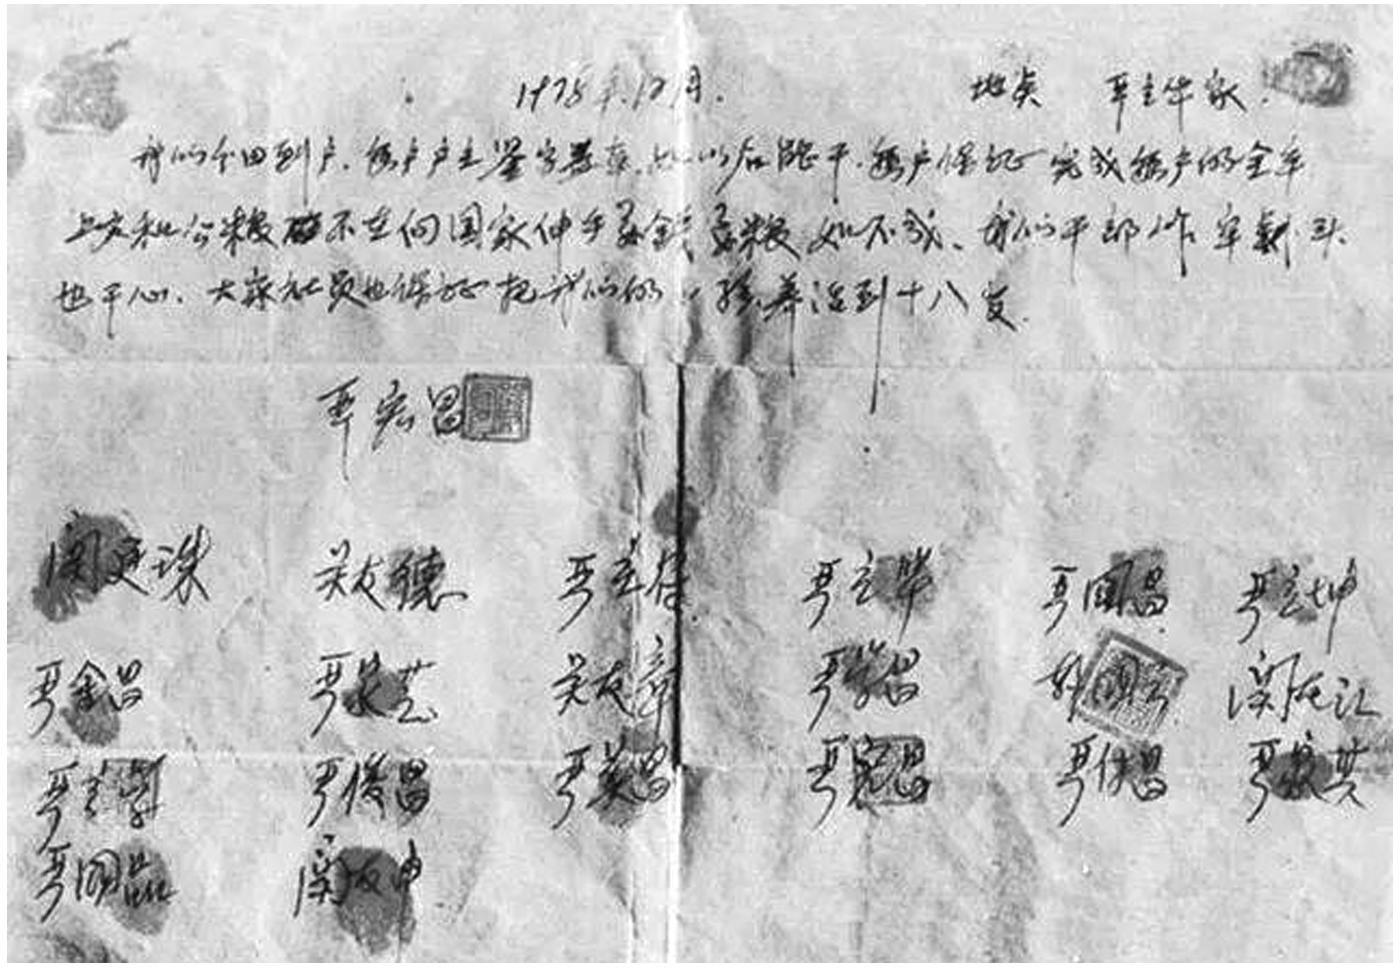 1978年12月. 地点 严立华家.
我们分田到户.每户户主签字盖章.如以后能干.每户保证完成每户的全年
上交和公粮不在向国家伸手要钱要粮如不成、我们干部作牢刹头
也干心.大家社员也保证把我们的小孩养活到十八岁.
严宏昌
关廷珠 关友德 严立符 严立华 严国昌 严立坤
严金昌 严家芝 关友章 严学昌 韩国云 关友江
严立学 严俊昌 严美昌 严宏昌 严付昌 严家其
严国品 关友申